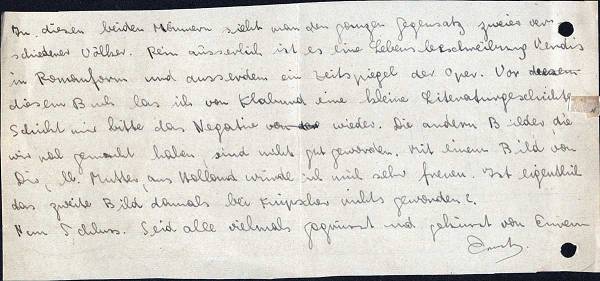 In diesen beiden Männern sieht man den ganzen Gegensatz zweier ver-
schiedener Völker. Rein äusserlich ist es eine Lebensbeschreibung Verdis
in Romanform und ausserdem ein Zeitspiegel der Oper. Vor diesem
diesem Buch las ich von Klabund eine kleine Literaturgeschichte.
Schickt mir bitte das Negativ von der wieder. Die andern Bilder, die
wir mal gemacht haben, sind nicht gut geworden. Mit einem Bild von
Dir, lb. Mutter, aus Holland würde ich mich sehr freuen. Ist eigentlich
das zweite Bild damals bei nichts geworden?
Nun Schluss. Seid alle vielmals gegrüsst und geküsst von Eurem